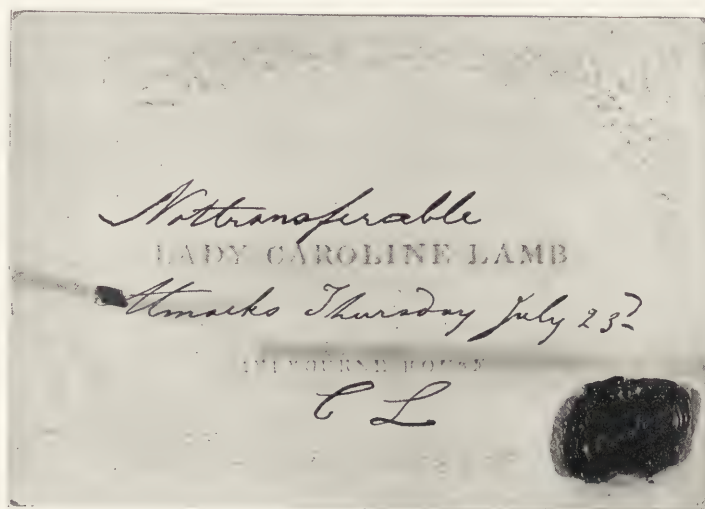 Nottransferable
LADY CAROLINE LAMB
Almacks Thursday July 23d
MELBOURNE HOUSE
C L